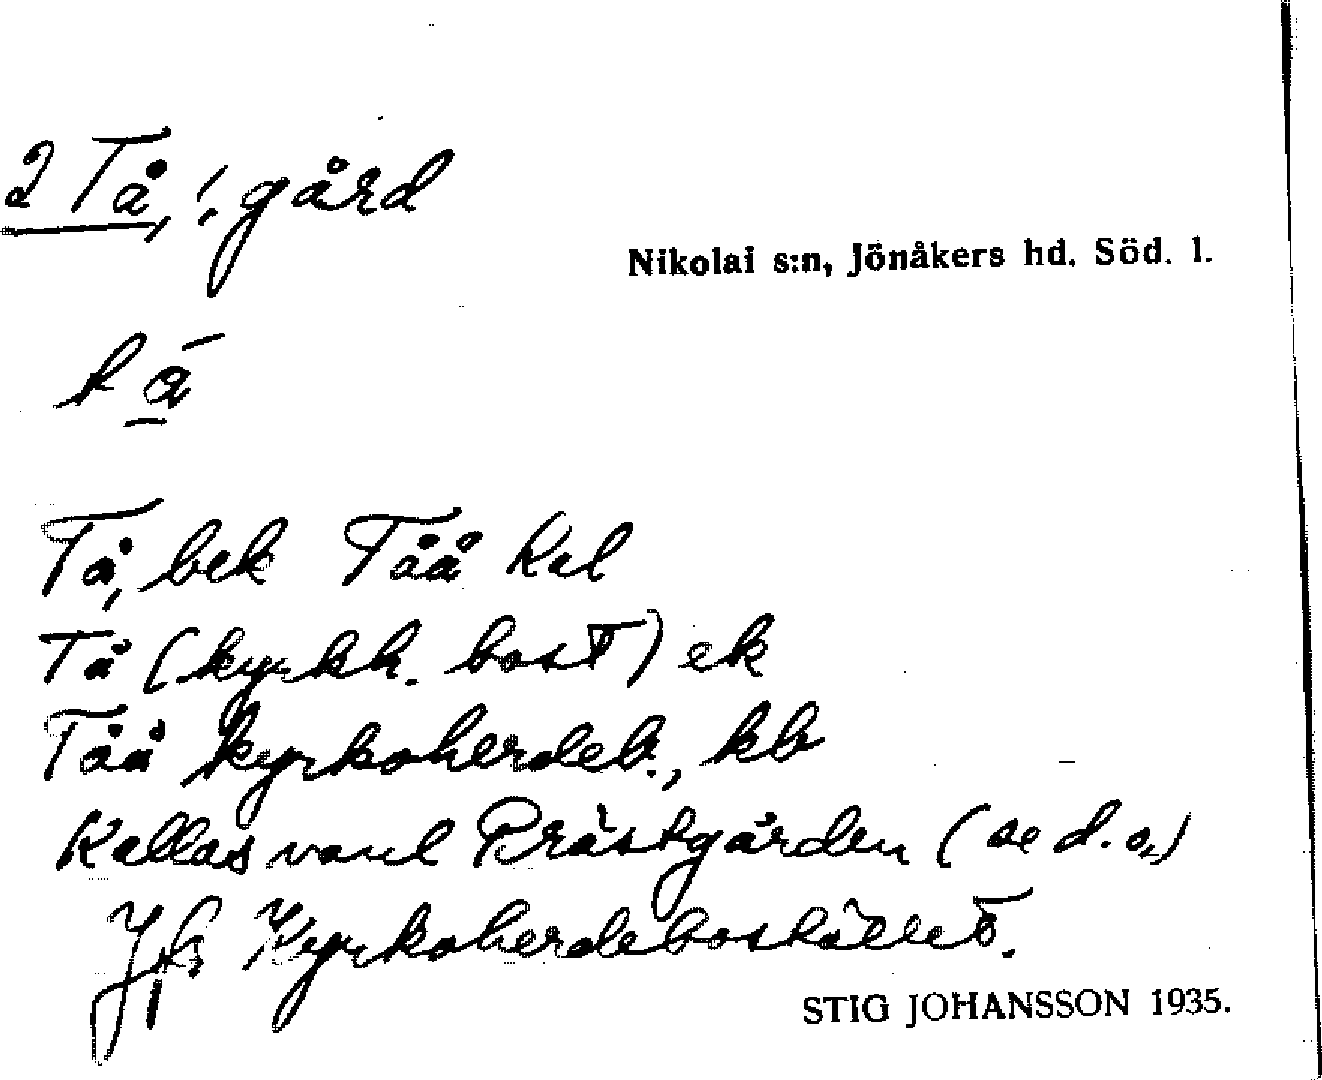 2 Tå, ; gård
Nikolai s:n, Jönåkers hd. Söd. l.
Tå, bek Tåå Kal
Tå (kyrkh. bost) ek
Tåå kyrkoherdeb., kb
Kallas vanl Prästgården (se d. o.)
Jfr Kyrkoherdebostället.
STIG JOHANSSON 1935.